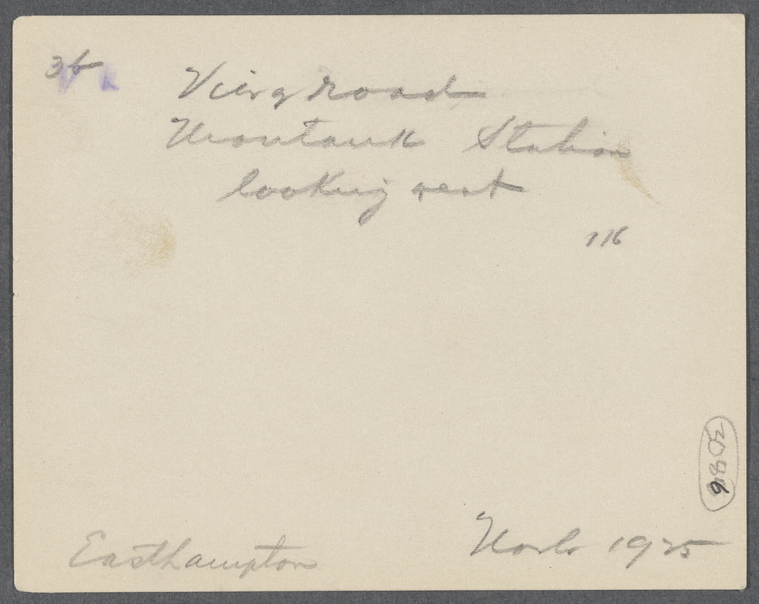 36
View of Road
Montauk Station
looking west
116
3086
Easthampton
1925